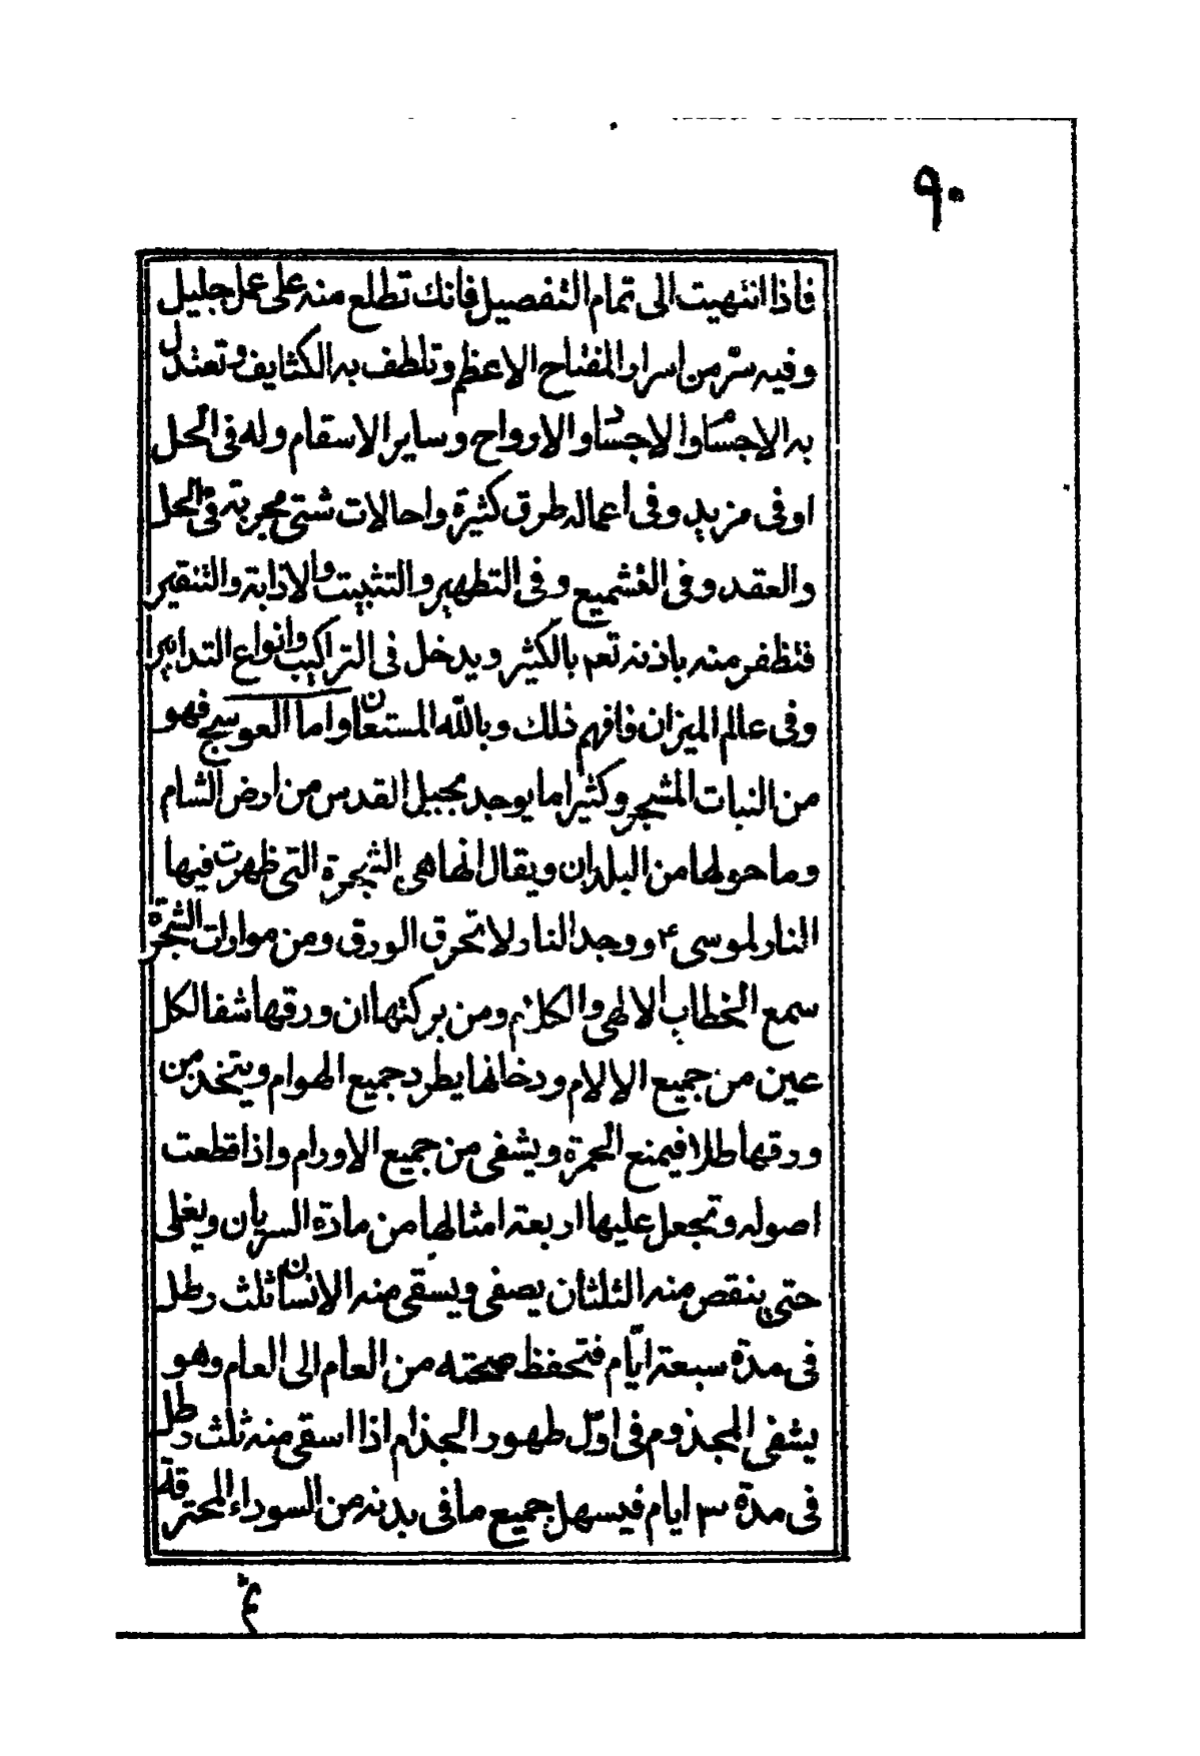 ٩٠
فاذا انتهيت الى تمام التفصيل فانك تطلع منه على عمل جليل
وفيه سرّ من اسرار المفتاح الاعظم وتلطف به الكثايف وتعتدل
به الاجسام والاجساد والارواح وساير الاسقام وله فى الحل
اوفى مزيد وفى اعماله طرق كثيرة واحالات شتى مجربة فى الحل
والعقد وفى التشميع وفى التطهير والتثبيت والاذابة والتنقير
فتظفر منه باذنه تعم بالكثير ويدخل فى التراكيب وانواع التدابير
وفى عالم الميزان فافهم ذلك وبالله المستعان واما العوسج فهو
من النبات المشجر وكثيرا ما يوجد بجبيل القدس من ارض الشام
وما حولها من البلدان ويقال انها هى الشجرة التى ظهرت فيها
النار لموسى ع ووجد النار لا تحرق الورق ومن موارات الشجرة
سمع الخطاب الالهى والكلام ومن بركتها ان ورقها شفا لكل
عين من جميع الالام ودخانها يطرد جميع الهوام ويتخذ من
ورقها طلا فيمنع الحمرة ويشفى من جميع الاورام واذا قطعت
اصوله وتجعل عليها اربعة امثالها من مادة السريان ويغلى
حتى ينقص منه الثلثان يصفى ويسقى منه الانسان ثلث رطل
فى مدة سبعة ايّام فتحفظ صحته من العام الى العام وهو
يشفى المجذوم فى اوّل ظهور الجذام اذا اسقى منه ثلث رطل
فى مدة ٣ ايام فيسهل جميع ما فى بدنه من السوداء المحترقة